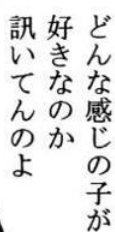 どんな感じの子が
好きなのか
訊いてんのよ